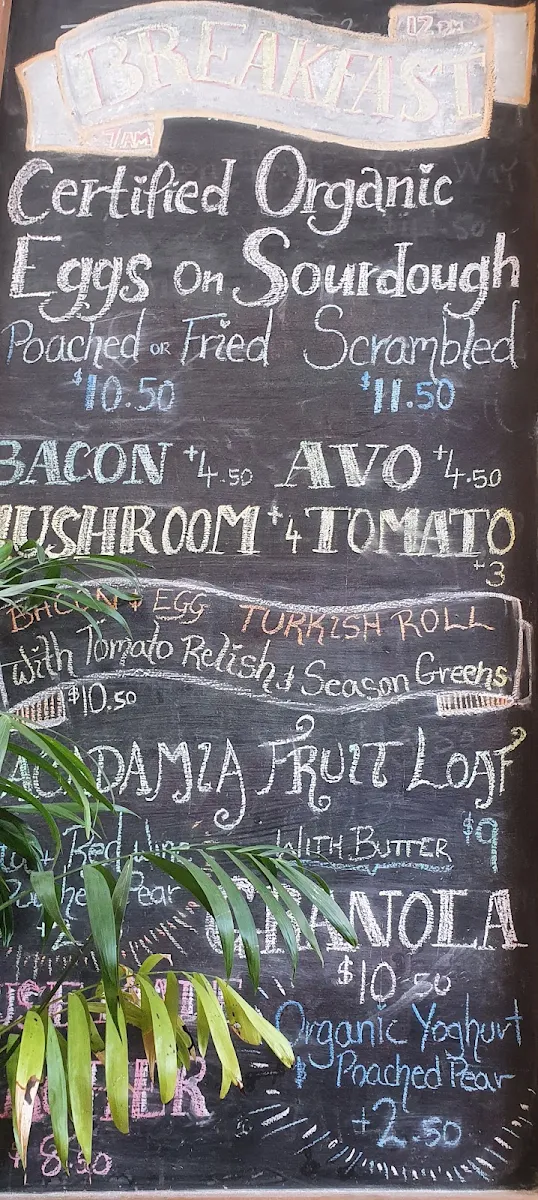 12 PM
BREAKFAST
7/AM
Certified Organic
Eggs on Sourdough
Poached OR Fried Scrambled
$10.50 $11.50
BACON +4.50 AVO +4.50
MUSHROOM +4 TOMATO
+3
BACON & EGG TURKISH ROLL
With Tomato Relish & Season Greens
$10.50
ACADAMIA FRUIT LOAF
WITH BUTTER $9
Red Wine
Poached Pear
GRANOLA
$10.50
Organic Yoghurt
& Poached Pear
+2.50
8.50